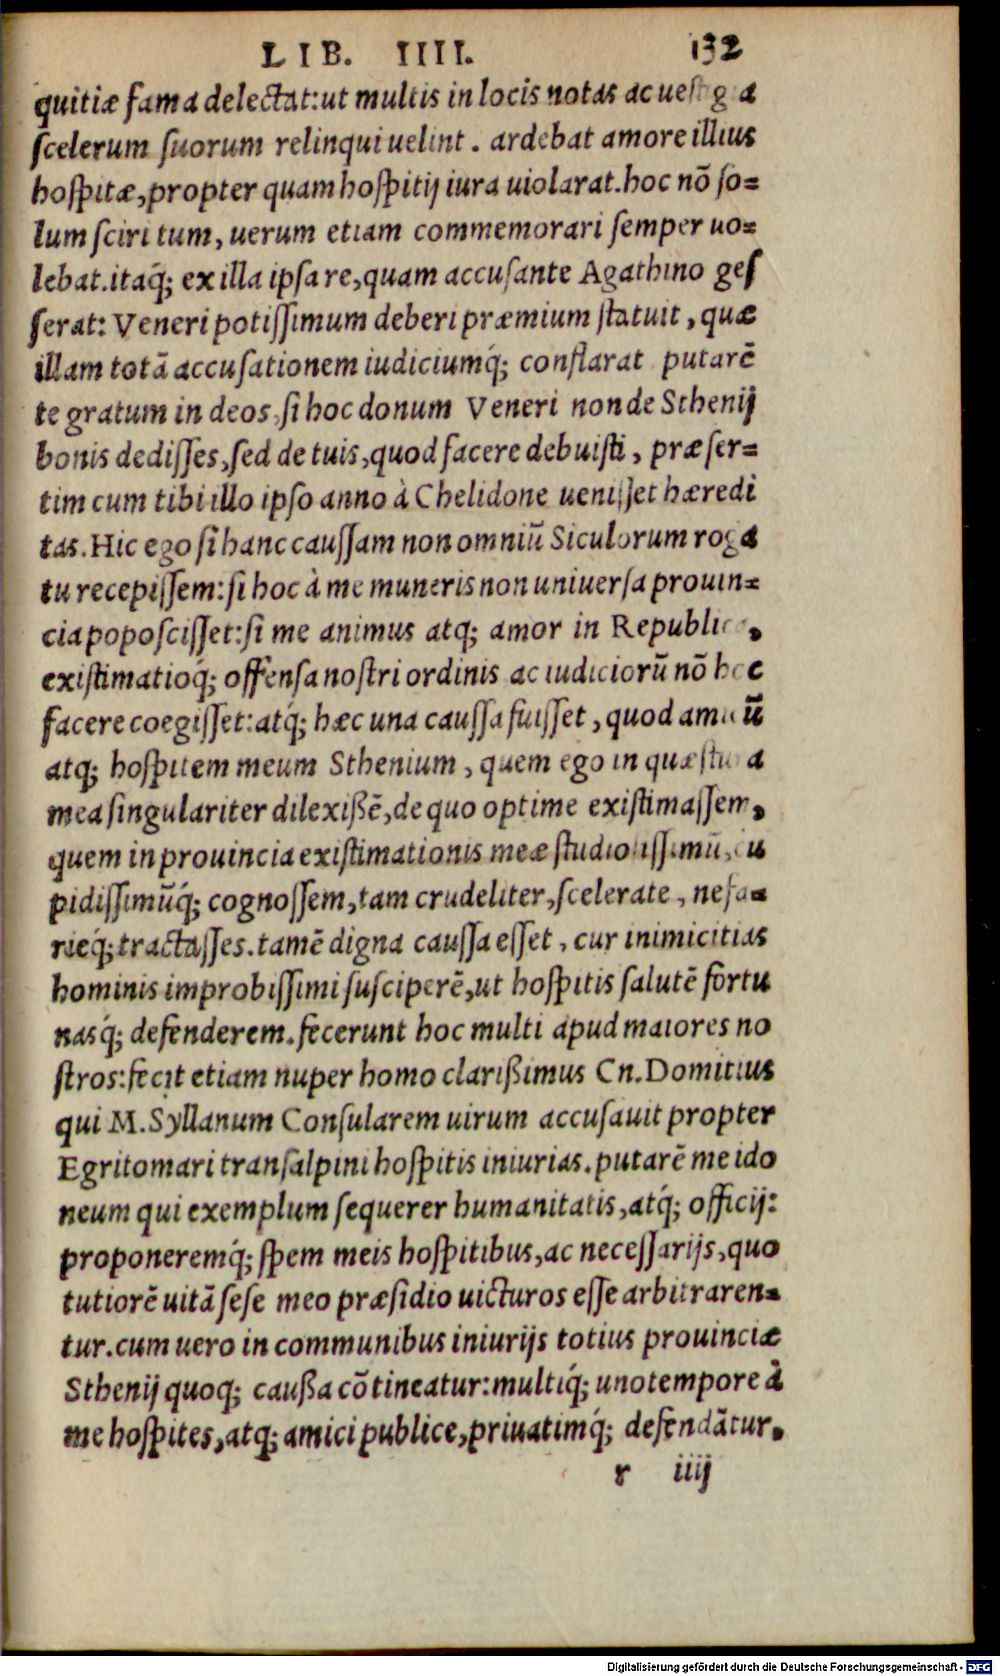 LIB. IIII. 132
quitiæ fama delectat:ut multis in locis notas ac uestigia
scelerum suorum relinqui uelint. ardebat amore illius
hospitæ, propter quam hospitij iura uiolarat. hoc nõ so=
lum sciri tum, uerum etiam commemorari semper uo=
lebat. itaq́; ex illa ipsa re, quam accusante Agathino ges
serat: Veneri potissimum deberi præmium statuit, quæ
illam totã accusationem iudiciumq́; conflarat putarẽ
te gratum in deos, si hoc donum Veneri non de Sthenij
bonis dedisses, sed de tuis, quod facere debuisti, præser=
tim cum tibi illo ipso anno à Chelidone uenisset hæredi
tas. Hic ego si hanc caussam non omniũ Siculorum roga
tu recepissem: si hoc à me muneris non uniuersa prouin=
cia poposcisset: si me animus atq; amor in Republica,
existimatioq́; offensa nostri ordinis ac iudiciorũ nõ hoc
facere coegisset: atq́; hæc una caussa fuisset, quod amicũ
atq; hospitem meum Sthenium, quem ego in quæstura
mea singulariter dilexißẽ, de quo optime existimassem,
quem in prouincia existimationis meæ studiosissimũ, cu
pidissimũq́; cognossem, tam crudeliter, scelerate, nefa=
rieq́; tractasses. tamẽ digna caussa esset, cur inimicitias
hominis improbissimi susciperẽ, ut hospitis salutẽ fortu
nasq́; defenderem. fecerunt hoc multi apud maiores no
stros: fecit etiam nuper homo clarißimus Cn. Domitius
qui M. Syllanum Consularem uirum accusauit propter
Egritomari transalpini hospitis iniurias. putarẽ me ido
neum qui exemplum sequerer humanitatis, atq́; officij:
proponeremq́; spem meis hospitibus, ac necessarijs, quo
tutiorẽ uitã sese meo præsidio uicturos esse arbitraren=
tur. cum uero in communibus iniurijs totius prouinciæ
Sthenij quoq; caußa cõtineatur: multiq́; uno tempore à
me hospites, atq; amici publice, priuatimq́; defendãtur.
r iiij
Digitalisierung gefördert durch die Deutsche Forschungsgemeinschaft - DFG